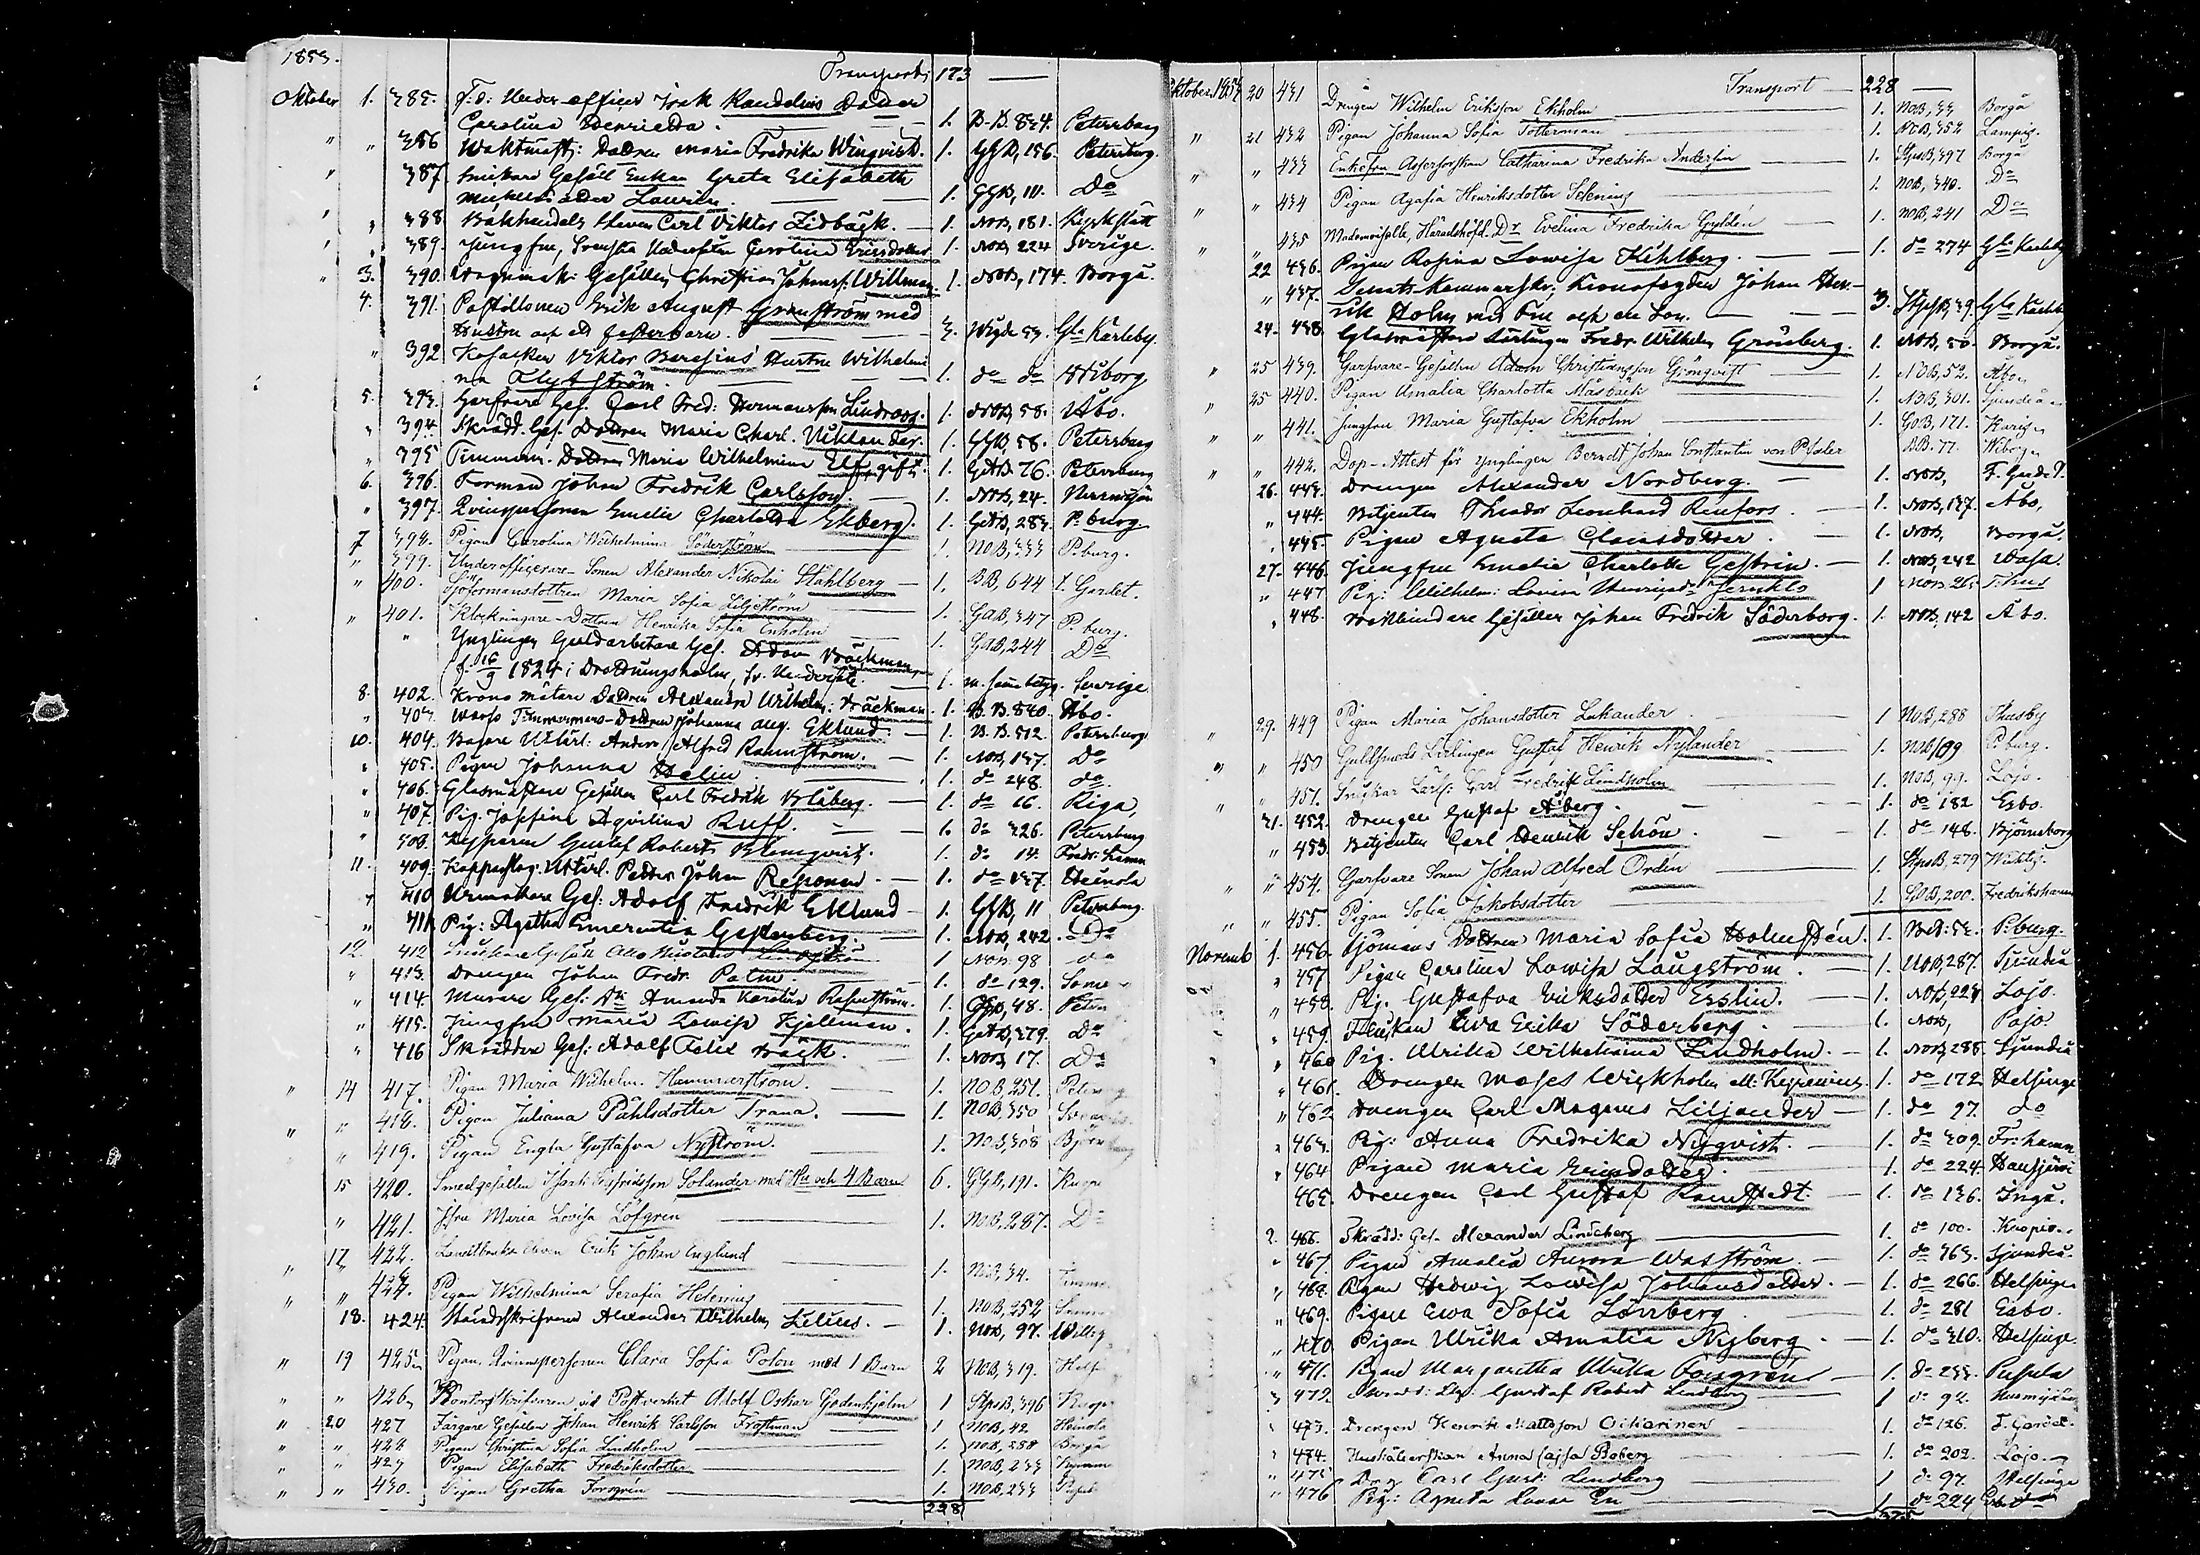 1853.
Transport 173 —
Oktober 1. 385. F.d. Under-officer Isak Dotter
Carolina Henrietta. 1. B.B. 834. Petersburg
" " 386 Waktmast: Dottren Maria Fredrika Winqvist. 1. GGB, 156. Petersburg.
" 387 Gesäll Enkan Greta Elisabeth
Laurin. 1. GGB, 111. Do
" " 388 Bokhandels Eleven Carl Viktor Lidbäck. 1. NOB, 181. Kyrkslätt
" " 389 Jungfru, Svenska Undersåten Carolina 1. NOB, 224 Sverige.
" 3. 390. Gesällen Christian Johanss: Willman. 1. NOB, 174. Borgå.
4. 391. Postillonen Erik August Granström med
Hustru och ett fosterbarn. 3. 53. Gla Karleby.
" 392 Kosacken Viktor Hustru Wilhelmi
na Flygtström. 1. do do Wiborg
5. 393. Garfvare Ges. Carl Fred: Hermansson Lindroos. 1. NOB, 58. Åbo.
" 394. Skrädd. Ges. Dottren Maria Charl. Uiktander. 1. GGB, 58. Petersburg
" 395 Timmerm. Dottren Maria Wilhelmina 1. GOB. 76. Petersburg
6. 396. Formand Johan Fredrik Carlsson. 1. NOB, 24.
" 397. Qvinspersonen Emelie Charlotta Ekberg. 1. GOB, 283. P.burg.
7 398. Pigan Carolina Wilhelmina Söderström 1. NOB, 333 P.burg.
" 399. Underofficerare-Sonen Alexander Nikolai Stahlberg 1. BB, 644 T. Gardet.
" 400. Dottren Maria Sofia Liljeström 1. GOB, 347 P.burg.
" 401. Klockringare-Dottren Henrika Sofia Enholm 1. GOB, 244 Do
" Ynglingen Guldarbetare Ges. Adam Bäckman
f. 16/9 1824 i Drottningholm, Sv. Undersåte. 1. Sverige
8. 402. Krono mätare Dottren Alexandra Wilhelm: Bäckman. 1. B.B. 840. Åbo.
" 403. Timmermans-Dottren Johanna Aug. Eklund 1. B.B. 512. Petersburg
10. 404. Bagare Utlärl: Anders Alfred Rahmström. 1. NOB, 137. Do
" 405. Pigan Johanna Helin 1. do 248. do
" 406. Glasmästare Gesällen Carl Fredrik Blåberg. 1. do 16. Riga,
" 407. Pig. Josefina Aqvilina Ruff. 1. do 326. Petersburg
" 408. Kyparen Gustaf Robert Blomqvist. 1. do 14. Fredr: hamn
11. 409. Kopparslag. Utlärl. Petter Johan Reponen. 1. do 137. Heinola
" 410 Urmakare Ges: Adolf Fredrik Eklund 1. GGB, 11 Petersburg
" 411. Pig: Agatha Emerentia Gestenberg. 1. NOB, 242. Do
12. 412. Gesäll Otto Gustaf 1 NOB. 98 do
" 413. Drengen Johan Fredr. Palm 1. do 129. Somero
" 414. Murare Ges: Dr Amanda Karolina Rosenström. 1. GGB, 48. Peters
" 415. Jungfru Maria Lowisa Kjelleman. 1. GOB, 379. Do
" 416 Skräddare Ges: Adolf Felix Bäck. 1. NOB, 17. Do
" 14 417. Pigan Maria Wilhelm. Hammarström. 1. NOB, 251. Peters
" " 418. Pigan Juliana Påhlsdotter Trana. 1. NOB, 350
" 419. Pigan Engla Gustafva Nyström. 1. NOB, 308 Björneborg
15 420. Smedgesällen Isak Sigfridsson Solander med Hu och 4 Barn 6. GGB, 191.
" 421. Jfru Maria Lovisa Löfgren 1. NOB, 287. Do
" 17 422. Landtbruks Eleven Erik Johan Englund 1. NOB, 34.
" " 423. Pigan Wilhelmina Serafia Helenius 1. NOB, 252
18. 424. Handskrifvaren Alexander Wilhelm Lilius. 1. NOB, 97.
" 19 425. Pigan, Qvinnspersonen Clara Sofia Polon med 1 Barn 2 NOB, 319. Helf
" " 426. Kontorsskrifvaren vid Postverket Adolf Oskar Godenhjelm 1 StpsB, 396
" 20 427 Färgare Gesällen Johan Henrik Carlsson Frostman 1 NOB, 42. Heinola
" " 428 Pigan Christina Sofia Lindholm 1. NOB, 258 Borgå
" " 429 Pigan Elisabeth Fredriksdotter 1. NOB, 233
" " 430. Pigan Gretha Forsgrén 1. NOB, 233
228
Oktober 1853 Transport 228 —
20 431 Drengen Wilhelm Eriksson Ekholm 1. NOB, 33 Borgå
" 21 432 Pigan Johanna Sofia Totterman 1. NOB, 352 Lampis.
" " 433 Enkefru Catharina Fredrika Andersin 1. StpsB, 397 Borgå
" " 434 Pigan Agafia Henriksdotter Selenius 1. NOB, 340. Do
" " 435 Mademoiselle, Häradshöfd. Dr Evelina Fredrika Gyldén 1. NOB, 241 Do
22 436. Pigan Rosina Lowisa Kihlberg. 1. do 274 Gla Karleby
" 437. Senats Kammarskr; Kronofogden Johan Hen-
rik Holm med Fru och en Son. 3. StpsB, 39. Gla Karleb
24. 438. Glasmästare Lärlingen Fredr. Wilhelm Grönberg. 1. NOB, 50. Borgå.
" 25 439. Garfvare-Gesällen Adam Christiansson Grönqvist 1. NOB, 52. Åbo,
" 25 440. Pigan Amalia Charlotta Måsbäck 1. NOB, 301. Sjundeå
" " 441. Jungfrun Maria Gustafva Ekholm 1. GOB, 171. Karis,
" " 442. Dop-Attest för Ynglingen Berndt Johan Constantin von Pfaler BB. 77. Wiborg
26. 443. Drengen Alexander Nordberg. 1. NOB,
" 444. Betjenten Theodor Leonhard Renfors. 1. NOB, 137. Åbo,
" 445. Pigan Agneta Claesdotter. 1. NOB, Borgå.
27. 446. Jungfru Emelie Charlotte Gestrin. 1. NOB, 242 Wasa.
" 447 Pig: Wilhelm: Lovisa Henricsdr 1 NOB. 26
" 448. Bokbindare Gesällen Johan Fredrik Söderborg. 1. NOB, 142 Åbo.
29. 449 Pigan Maria Johansdotter Lukander 1 NOB, 288 Thusby
" " 450 Guldsmeds Lärlingen Gustaf Henrik Nylander 1. NOB, 99 P.burg.
" " 451. Snickar Lärl: Carl Fredrik Lindholm 1. NOB, 99. Lojo.
31. 452. Drengen Gustaf Åberg. 1. do 182 Esbo.
" 453. Betjenten Carl Henrik Schön. 1. do 148. Björneborg
" " 454. Garfvare Sonen Johan Alfred Ordén 1. StpsB, 279 Wichtis.
" " 455. Pigan Sofia Jakobsdotter 1. GOB, 200. Fredrikshamn
Novemb 1. 456. Sjömans Dottren Maria Sofia Holmstén. 1. P.burg.
" 457 Pigan Carolina Lowisa Långström. 1. NOB, 287. Sjundeå
" 458. Pig. Gustafva Eriksdotter Erslin. 1. NOB, 224 Lojo.
" 459. Flickan Ewa Erika Söderberg. 1. NOB, Pojo.
" 460 Pig. Ulrika Wilhelmina Lindholm. 1. NOB, 288 Sjundeå
" 461. Drengen Moses Wiekholm 1. do 172 Helsinge
" 462 Drengen Carl Magnus Liljander 1. do 97. do
" 463. Pig: Anna Fredrika Nyqvist. 1. do 309. Fr:hamn
" 464 Pigan Maria Ericsdotter. 1. do 224 Hausjärvi
465. Drengen Carl Gustaf Ramstedt. 1. do 136. Ingå.
2. 466. Skrädd: Ges. Alexander Lindeberg 1. do 100. Kuopio.
" 467. Pigan Amalia Aurora Wasström 1. do 363. Sjundeå.
" 468. Pigan Hedwig Lowisa Johansdotter. 1. do 266. Helsinge
" 469. Pigan Ewa Sofia Lönrberg 1. do 281 Esbo.
" 470. Pigan Ulrika Amalia Nyberg. 1. do 310. Helsinge
" 471. Pigan Margaretha Ulrika Forsgren 1. do 233. Pusula
" 472. Gustaf Robert Lindberg 1 do 92.
" 473. Drengen Henrik Mattsson 1. do 126. T. Gardet.
" 474. Hushållerskan Anna Cajsa Boberg 1. do 202. Lojo.
" 475 Dreg Carl Gust: Lindberg 1 do 97. Helsinge
" 476 Pig: Agneta En 1 do 224,